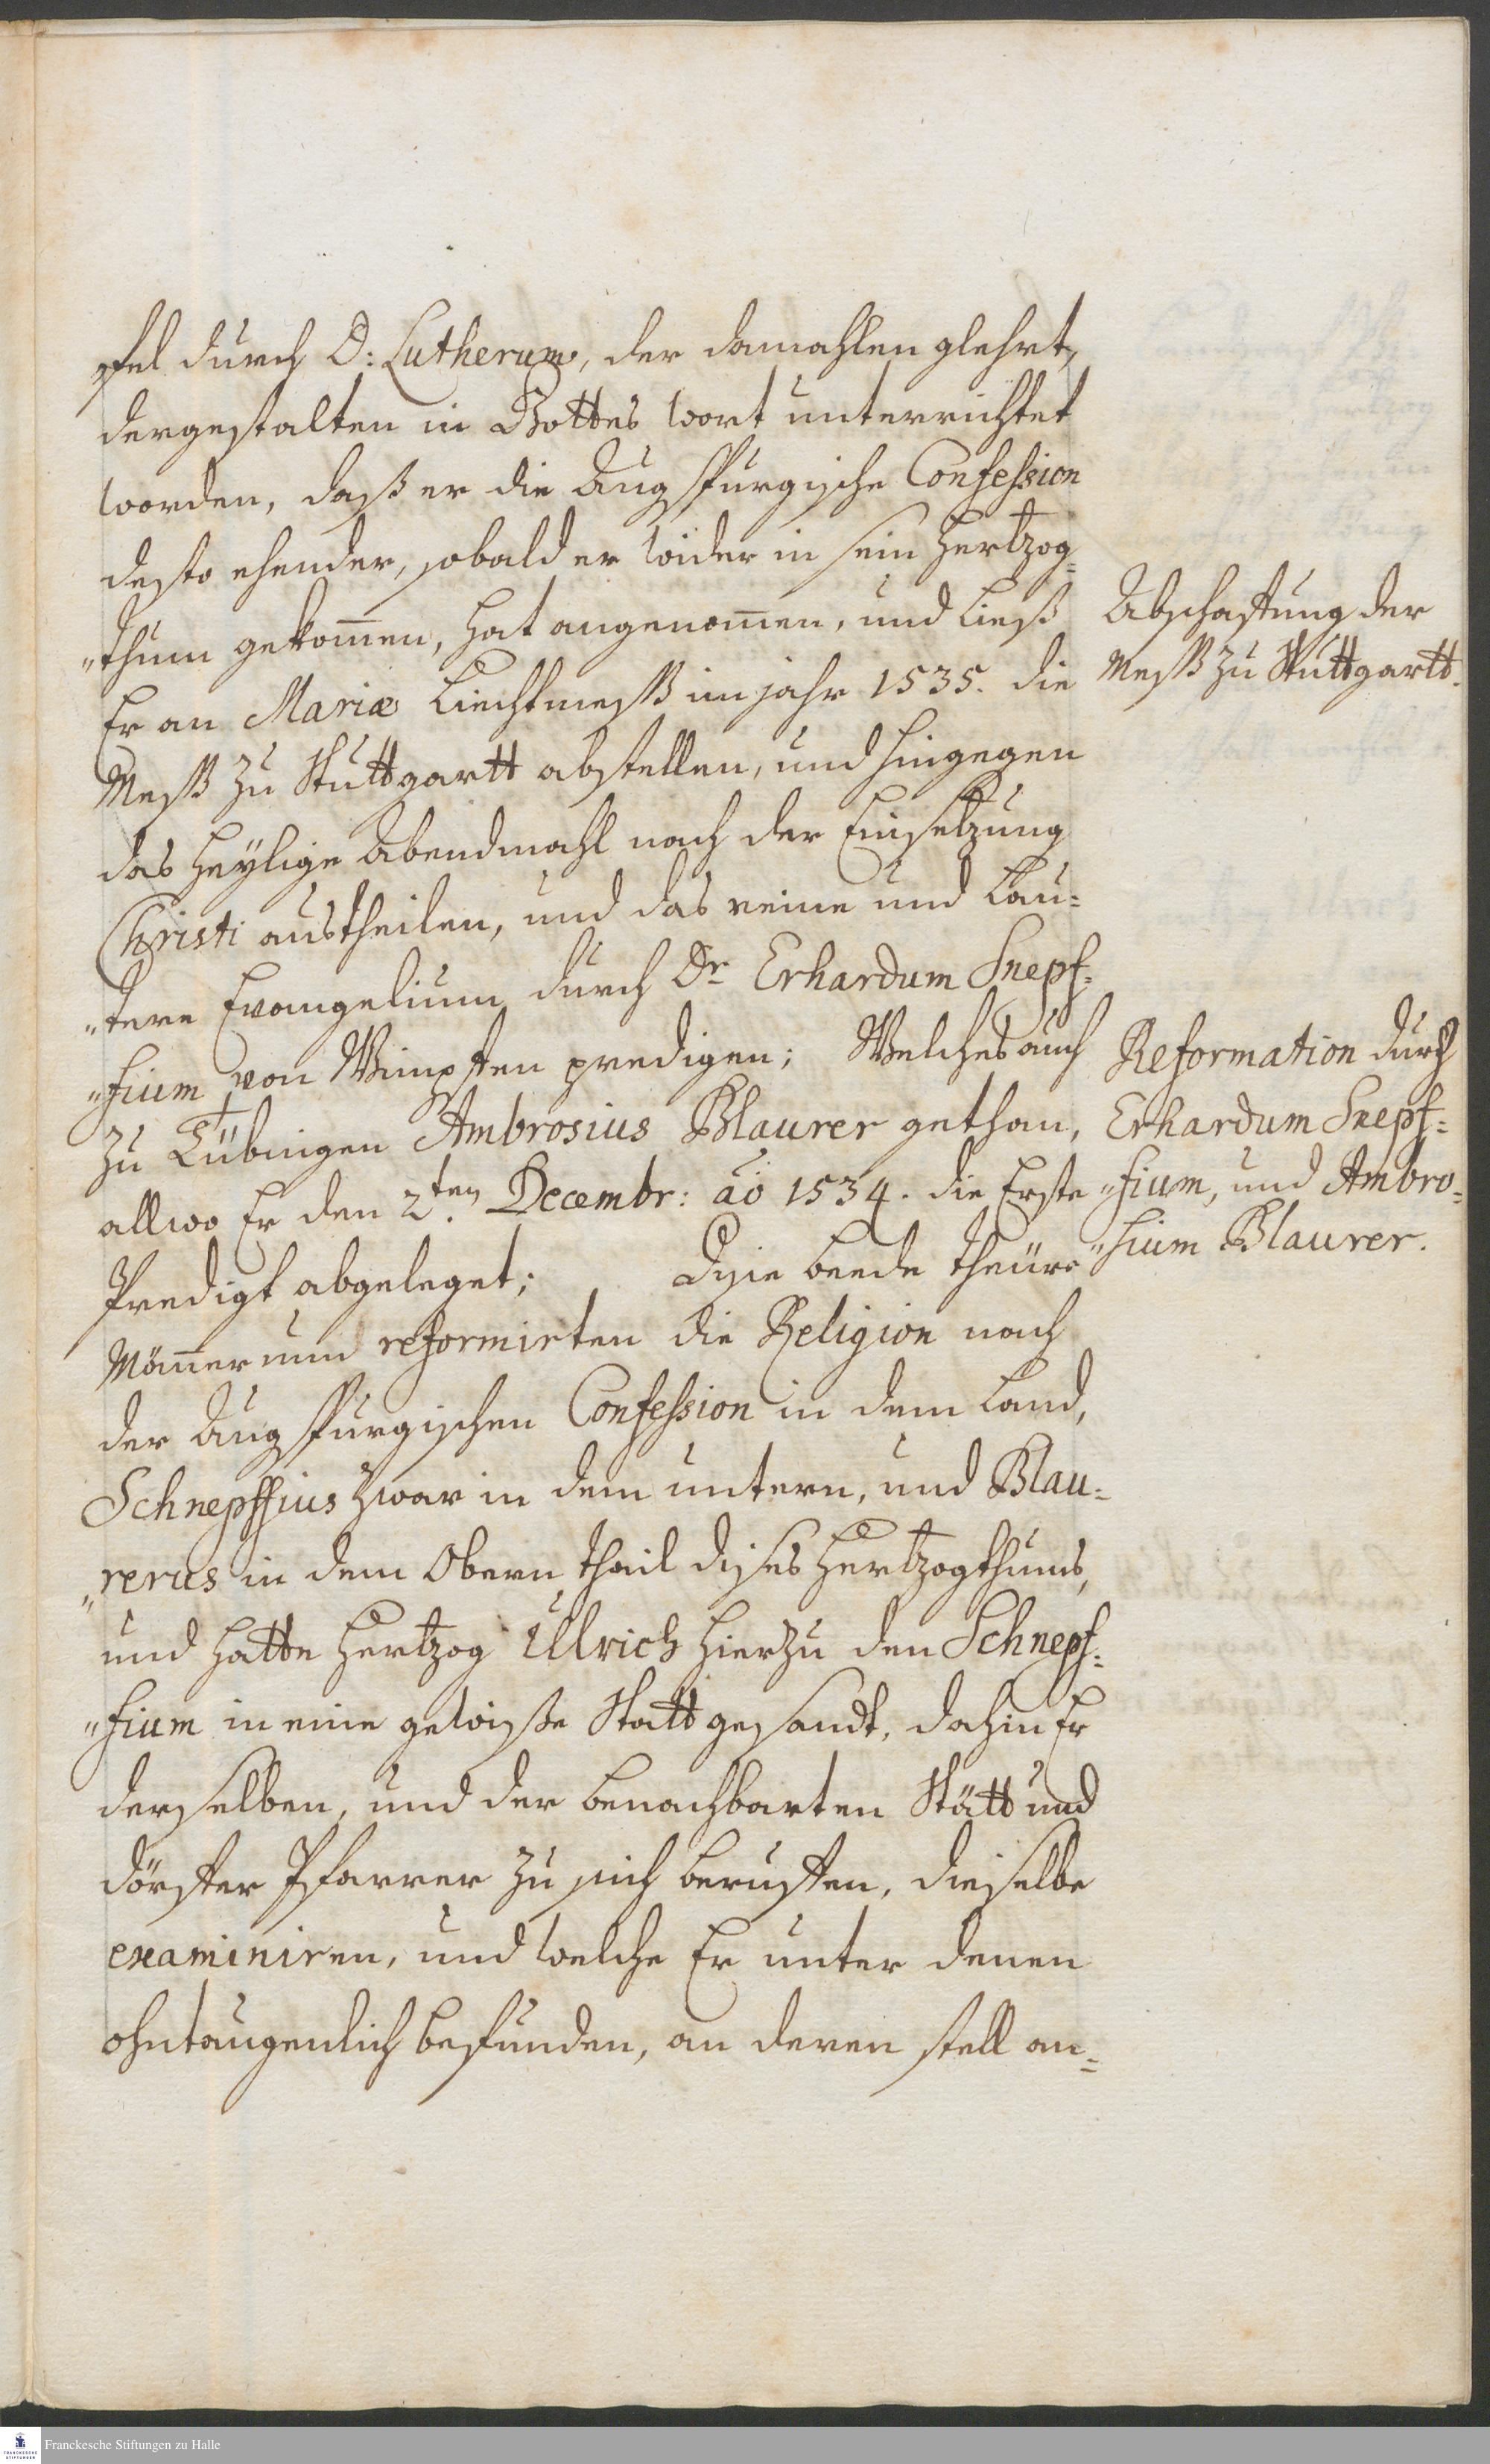 ssel durch D: Lutherum, der damahlen glehrt,
dergestalten in Gottes wort unterrichtet
worden, daß er die Augspurgische Confession
desto ehender, sobald er wider in sein Hertzog=
"thum gekom̄en, hat angenom̄en, und ließ
Er an Mariæ Liechtmeß im jahr 1535. die
Meß zu Stuttgartt abstellen, und hingegen
das Heylige Abendmahl nach der Einsetzung
Christi austheilen, und das reine und Lau=
"tere Evangelium durch Dr Erhardum Snepf=
"fium von Wimpffen predigen; Welches auch
zu Tübingen Ambrosius Blaurer gethan,
allwo Er den 2.ten Decembr: aō 1534. die Erste
Predigt abgeleget; Dise beede theüre
Mäñer nun reformirten die Religion nach
der Augspurgischen Confession in dem Land,
Schnepffius zwar in dem untern, und Blau=
"rerus in dem Obern theil dises Hertzogthums,
und hatte Hertzog Ulrich hierzu den Schnepf=
"fium in eine gewiße Statt gesandt, dahin Er
derselben, und der benachbarten Stätt und
dörffer Pfarrer zu sich beruffen, dieselbe
examiniren, und welche Er unter denen
ohntaugenlich befunden, an deren stell an=
Abschaffung der
Meß zu Stuttgartt.
Reformation durch
Erhardum Snepf=
"fium, und Ambro=
"sium Blaurer.
Franckesche Stiftungen zu Halle